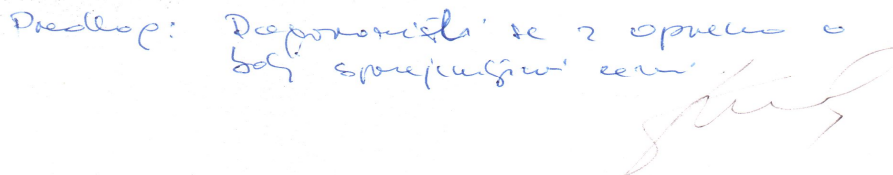 Predlog: Dogovoriti se z opremo o
bolj sprejemljivi ceni.